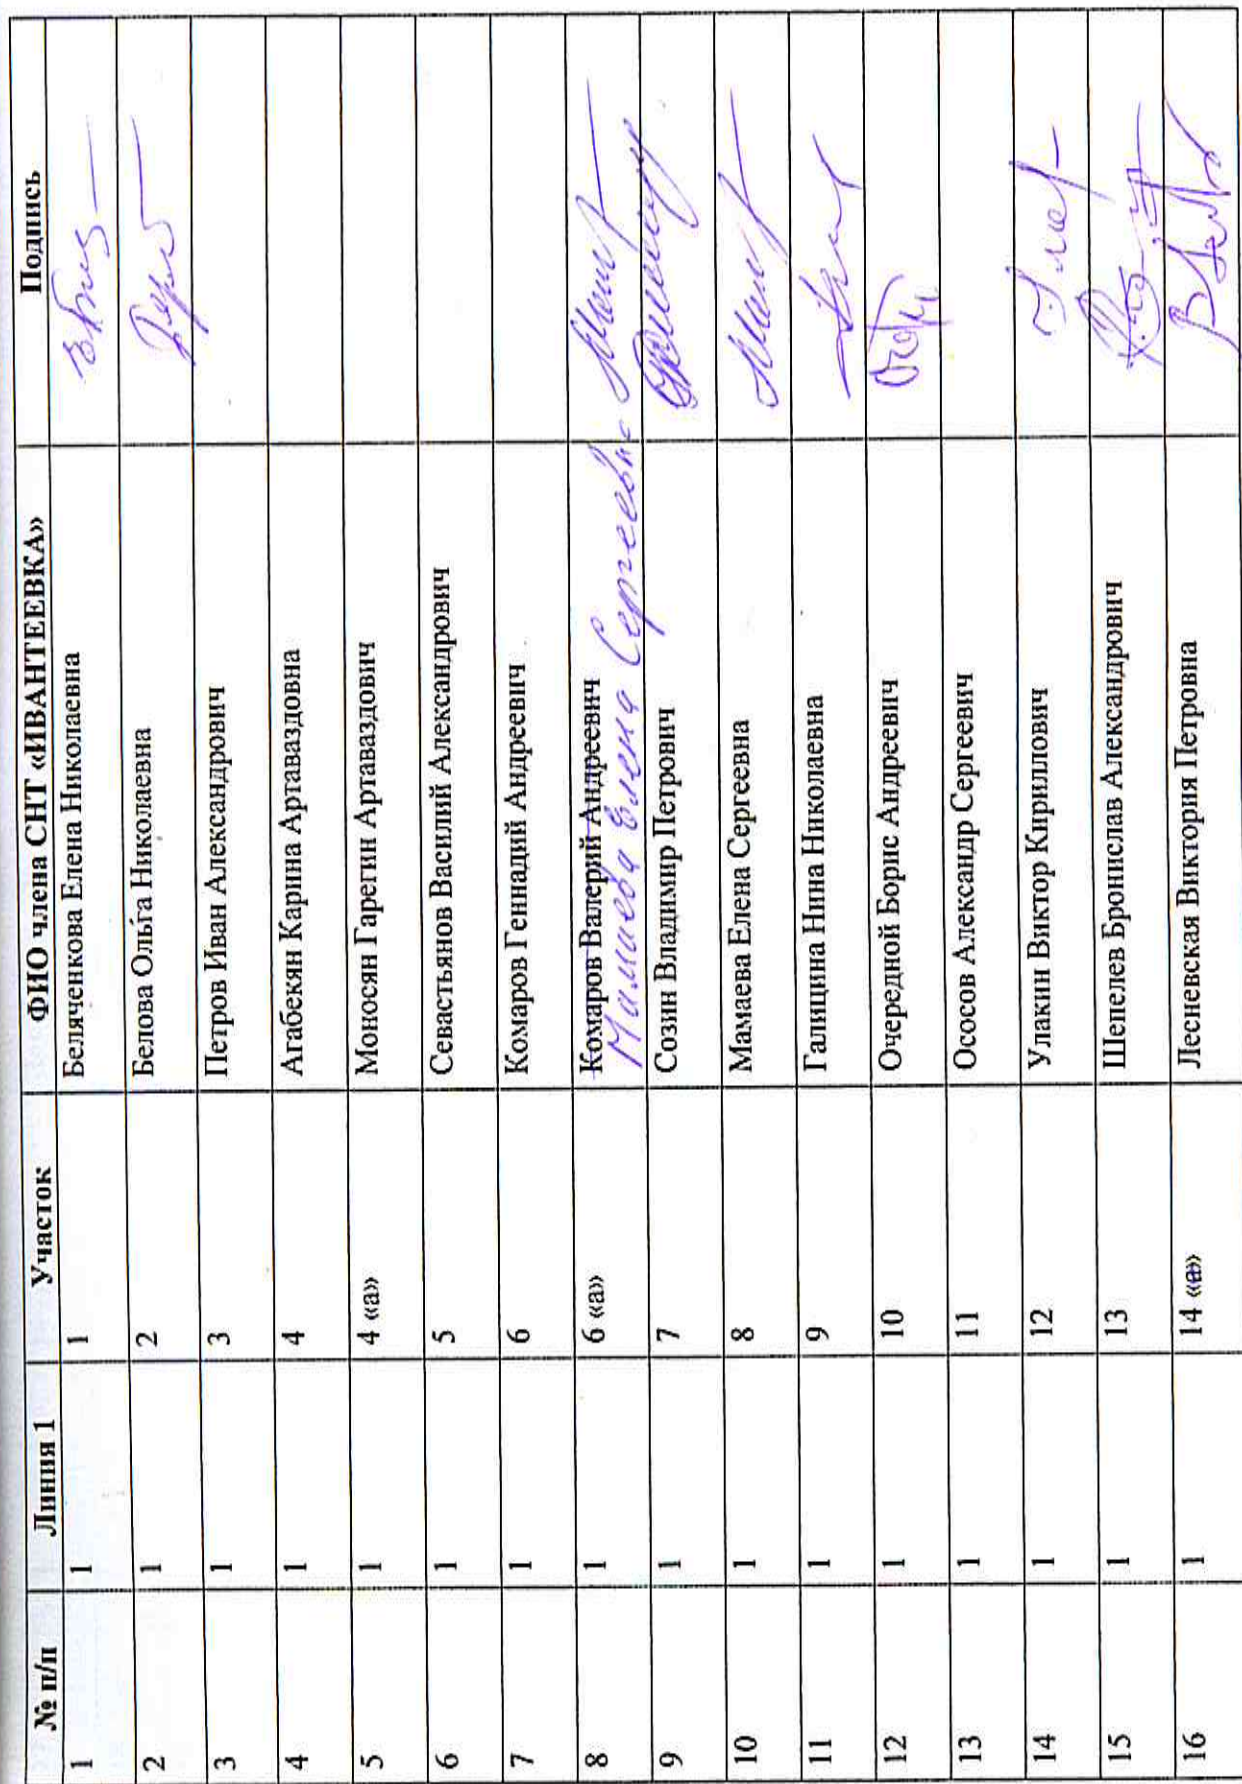 № п/п Линия 1 Участок ФИО члена СНТ «ИВАНТЕЕВКА» Подпись
1 1 1 Беляченкова Елена Николаевна
2 1 2 Белова Ольга Николаевна
3 1 3 Петров Иван Александрович
4 1 4 Агабекян Карина Артаваздовна
5 1 4 «а» Моносян Гарегин Артаваздович
6 1 5 Севастьянов Василий Александрович
7 1 6 Комаров Геннадий Андреевич
8 1 6 «а» Комаров Валерий Андреевич
Мамаева Елена Сергеевна
9 1 7 Созин Владимир Петрович
10 1 8 Мамаева Елена Сергеевна
11 1 9 Галицина Нина Николаевна
12 1 10 Очередной Борис Андреевич
13 1 11 Ососов Александр Сергеевич
14 1 12 Улакин Виктор Кириллович
15 1 13 Шепелев Бронислав Александрович
16 1 14 «а» Лесневская Виктория Петровна